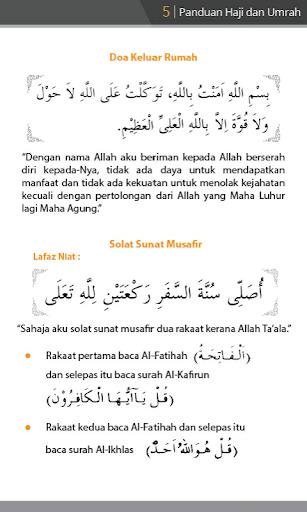 5 | Panduan Haji dan Umrah
Doa Keluar Rumah
بِسْمِ اللَّهِ اَمَنْتُ بِاللَّهِ، تَوَكَّلْتُ عَلَى اللَّهِ لاَ حَوْلَ
وَلاَ قُوَّةَ اِلاَّ بِاللَّهِ الْعَلِيِّ الْعَظِيْمِ.
“Dengan nama Allah aku beriman kepada Allah berserah
diri kepada-Nya, tidak ada daya untuk mendapatkan
manfaat dan tidak ada kekuatan untuk menolak kejahatan
kecuali dengan pertolongan dari Allah yang Maha Luhur
lagi Maha Agung.”
Solat Sunat Musafir
Lafaz Niat :
أُصَلِّى سُنَّةَ السَّفَرِ رَكْعَتَيْنِ لِلَّهِ تَعَلَى
“Sahaja aku solat sunat musafir dua rakaat kerana Allah Ta’ala.”
• Rakaat pertama baca Al-Fatihah (الْفَاتِحَةُ)
dan selepas itu baca surah Al-Kafirun
(قُلْ يَآاَيُّهَا الْكَافِرُوْنَ)
• Rakaat kedua baca Al-Fatihah dan selepas itu
baca surah Al-Ikhlas (قُلْ هُوَاللهُ اَحَدٌ)